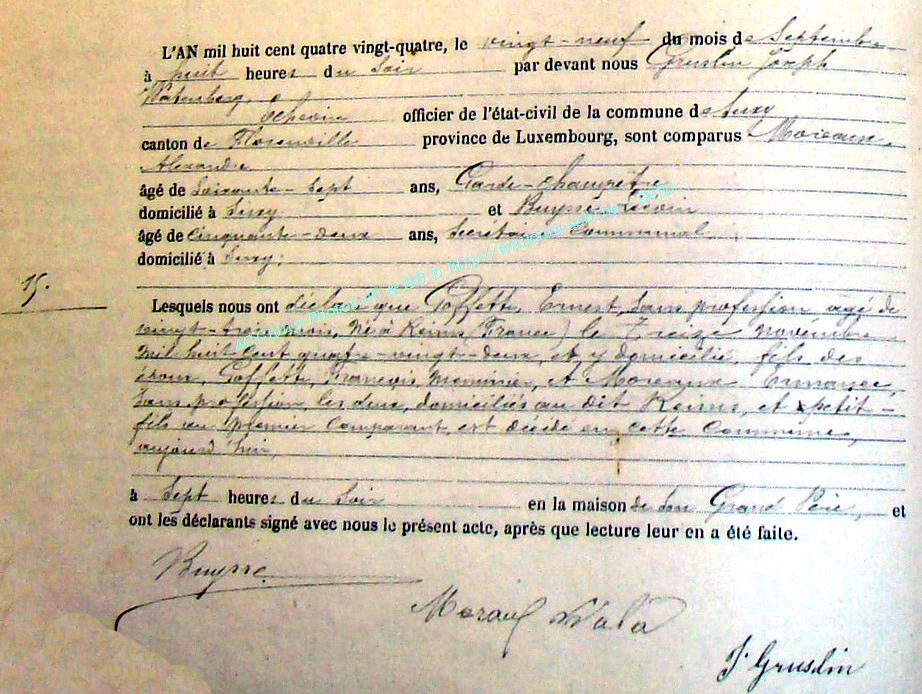 L'AN mil huit cent quatre vingt-quatre, le vingt-neuf du mois de Septembre
à huit heures du Soir par devant nous Gruslin Joseph
Echevin officier de l'état-civil de la commune de Suxy
canton de Florenville province de Luxembourg, sont comparus Moreaux
Alexandre
âgé de Soixante-Sept ans, Garde-Champêtre
domicilié à Suxy et Buysse Liévin
âgé de Cinquante-deux ans, Secrétaire Communal
domicilié à Suxy;
15.
Lesquels nous ont déclaré que Goffette, Ernest, Sans profession agé de
vingt-trois mois, né à Reims (France) le treize novembre
mil huit cent quatre-vingt-deux, et y domicilié, fils des
époux, Goffette, François menuisier, et Moreaux Ermance,
Sans profession, les deux, domiciliés au dit Reims, et petit-
fils du premier Comparant, est décédé en cette Commune,
aujourd'hui,
à Sept heures du Soir en la maison de Son Grand Père, et
ont les déclarants signé avec nous le présent acte, après que lecture leur en a été faite.
Buysse
Moraux
J. Gruslin